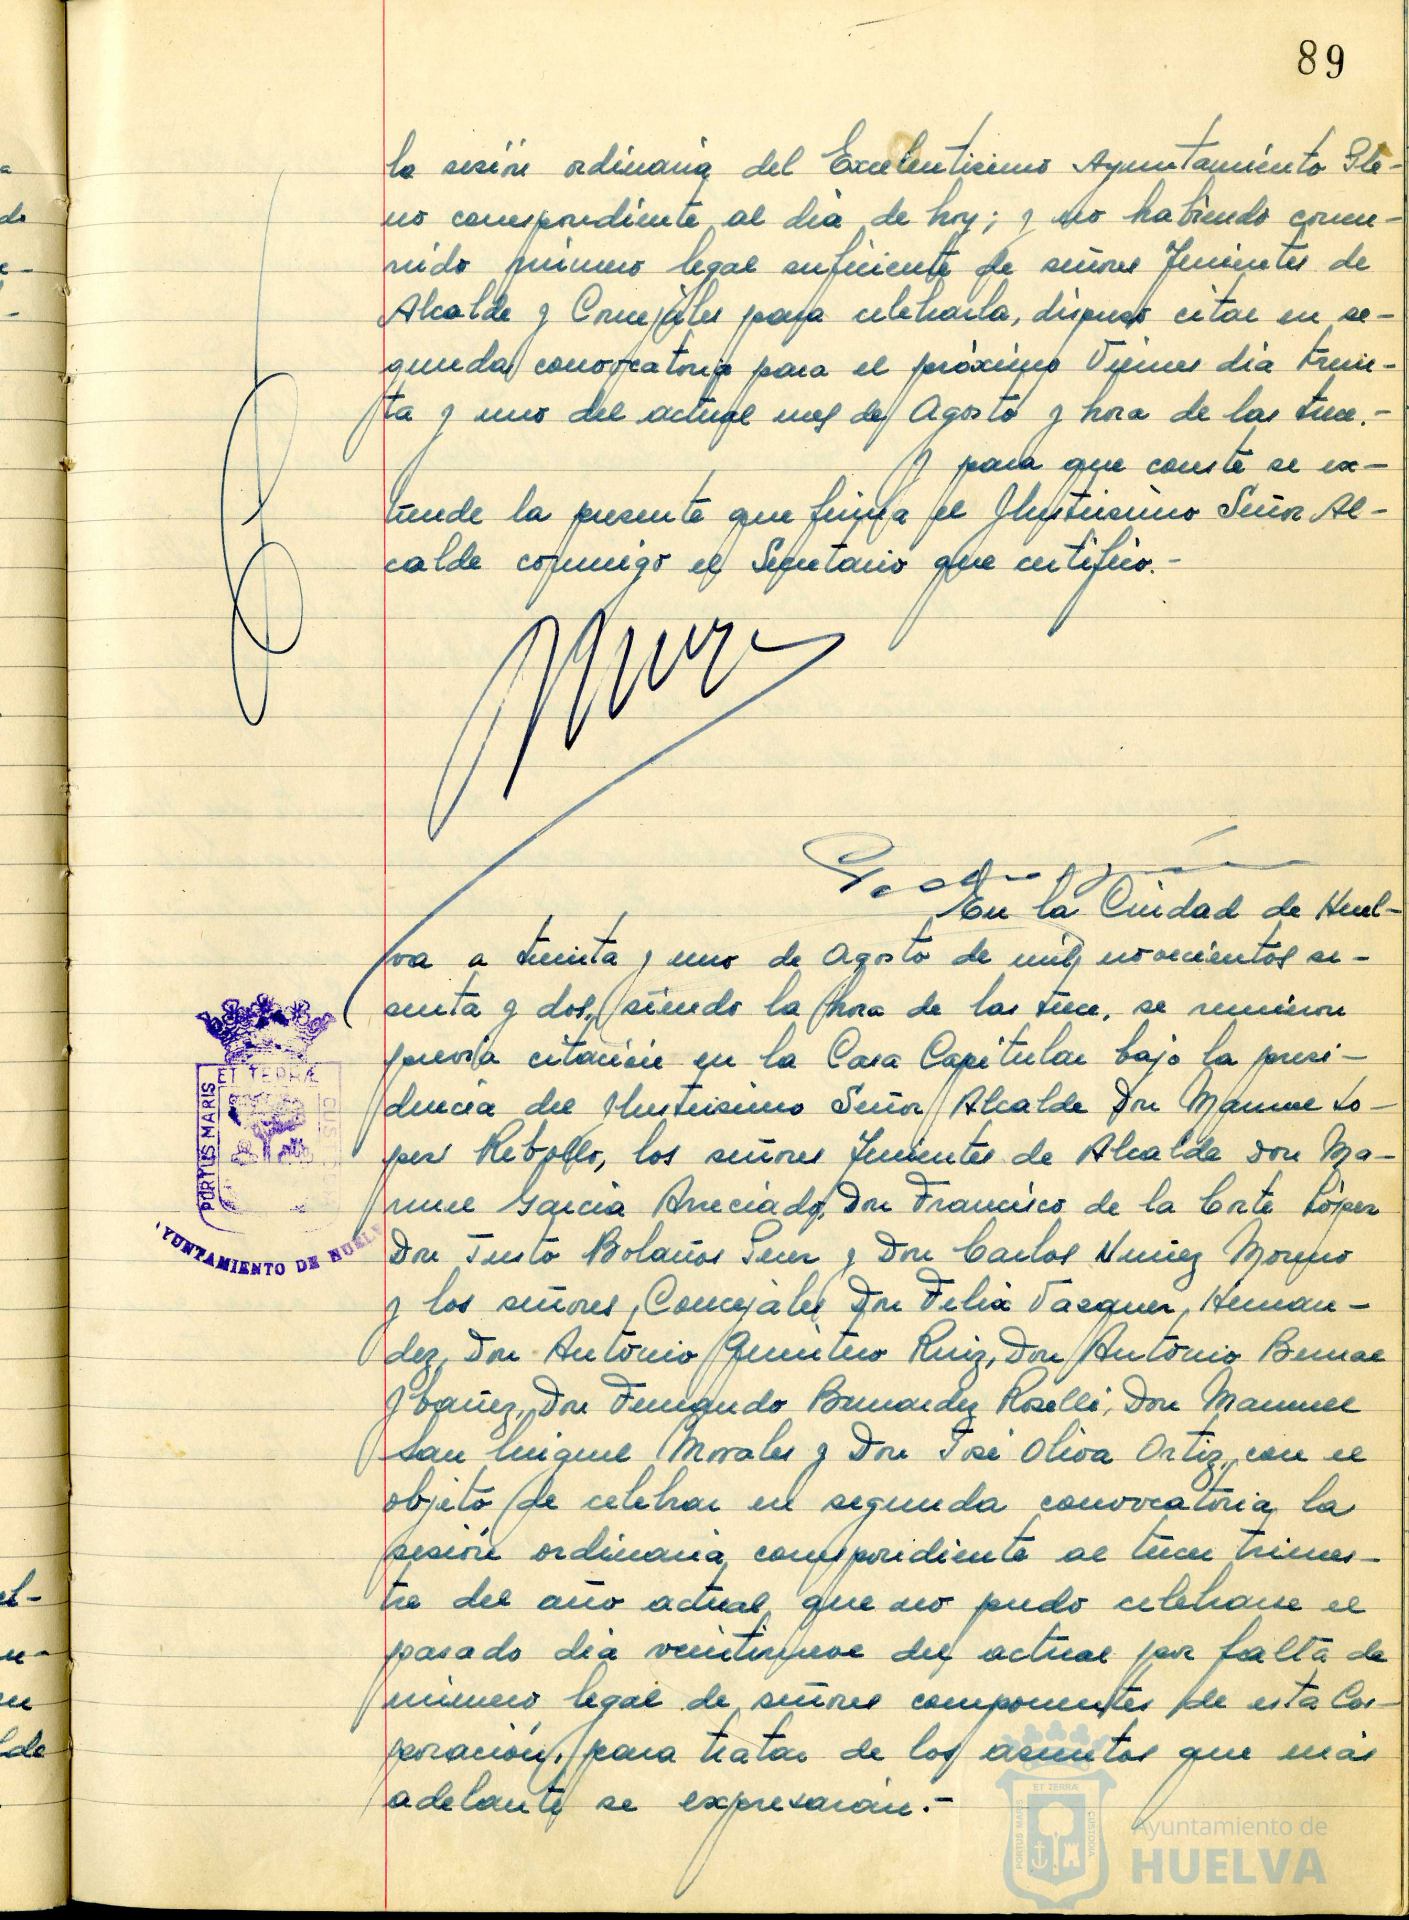 89
la sesión ordinaria del Excelentisimo Ayuntamiento Ple-
no correspondiente al dia de hoy; y no habiendo concu-
rrido número legal suficiente de señores Tenientes de
Alcalde y Concejales para celebrarla, dispuso citar en se-
gunda convocatoria para el próximo Viernes dia trein-
ta y uno del actual mes de Agosto y hora de las trece.-
Y para que conste se ex-
tiende la presente que firma el Ilustrisimo Señor Al-
calde conmigo el Secretario que certifico.-
En la Ciudad de Huel-
va a treinta y uno de Agosto de mil novecientos se-
senta y dos, siendo la hora de las trece, se reunieron
previa citación en la Casa Capitular bajo la presi-
dencia del Ilustrisimo Señor Alcalde Don Manuel Lo-
pez Rebollo, los señores Tenientes de Alcalde Don Ma-
nuel Garcia Arreciado, Don Francisco de la Corte López
Don Justo Bolaños Perez y Don Carlos Nuñez Moreno
y los señores Concejales Don Felix Vazquez Hernan-
dez, Don Antonio Quintero Ruiz, Don Antonio Bernal
Ybañez, Don Fernando Bernardez Roselli, Don Manuel
San Miguel Morales y Don José Oliva Ortiz, con el
objeto de celebrar en segunda convocatoria la
sesión ordinaria correspondiente al tercer trimes-
tre del año actual que no pudo celebrarse el
pasado dia veintinueve del actual por falta de
número legal de señores componentes de esta Cor-
poración, para tratar de los asuntos que más
adelante se expresarán.-
PORTUS MARIS
ET TERRÆ
CUS
YUNTAMIENTO DE HUELV
PORTUS MARIS
ET TERRÆ
CUSTODIA
Ayuntamiento de
HUELVA